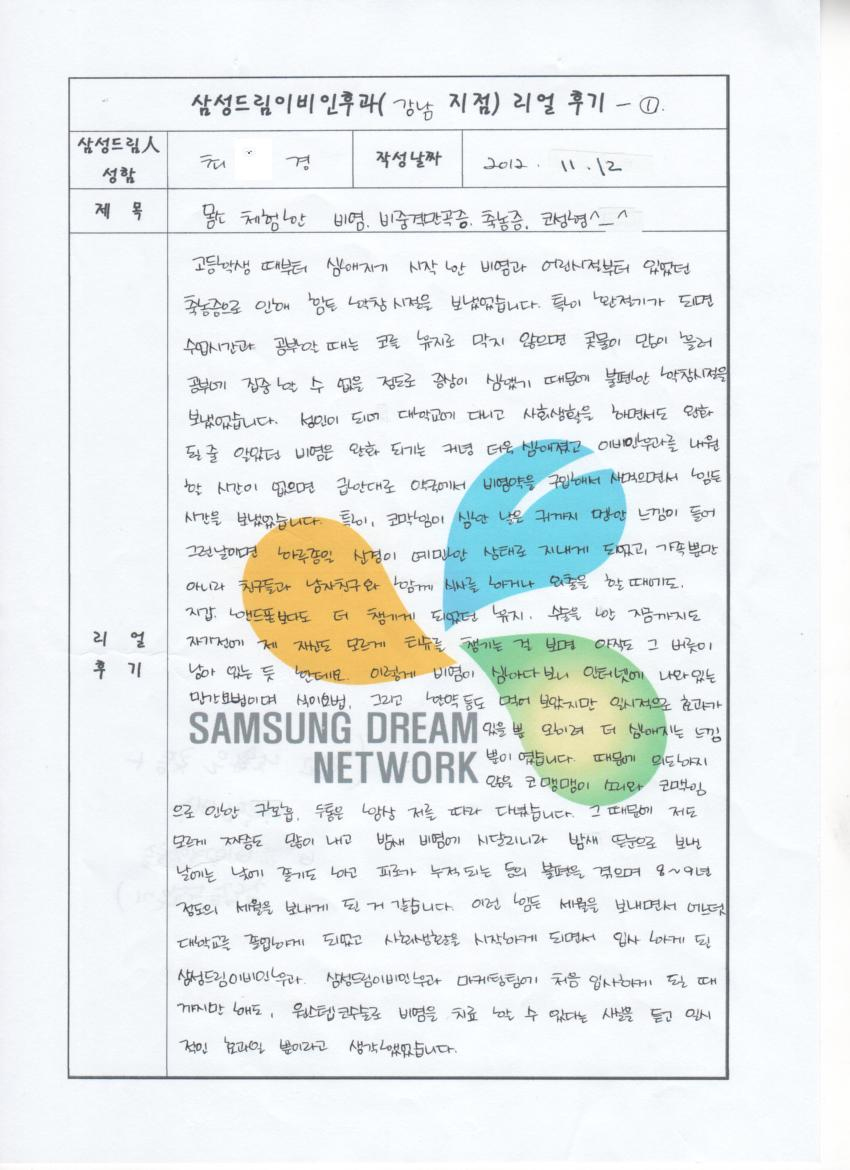 삼성드림이비인후과( 강남 지점) 리얼 후기 - ①.
삼성드림人 성함
최 경
작성날짜
2012. 11. 12
제 목
몽땅 체험한 비염. 비중격만곡증. 축농증. 코성형^_^
리 얼 후 기
고등학생 때부터 심해지기 시작한 비염과 어린시절부터 있었던
축농증으로 인해 힘든 학창시절을 보냈었습니다. 특히 환절기가 되면
수업시간과 공부할 때는 코를 휴지로 막지 않으면 콧물이 많이 흘러
공부에 집중 할 수 없을 정도로 증상이 심했기 때문에 불편한 학창시절을
보냈었습니다. 성인이 되어 대학교에 다니고 사회생활을 하면서도 완화
될 줄 알았던 비염은 완화 되기는 커녕 더욱 심해졌고 이비인후과를 내원
할 시간이 없으면 급한대로 약국에서 비염약을 구입해서 사먹으면서 힘든
시간을 보냈었습니다. 특히, 코막힘이 심한 날은 귀까지 멍한 느낌이 들어
그런날이면 하루종일 신경이 예민한 상태로 지내게 되었고, 가족뿐만
아니라 친구들과 남자친구와 함께 식사를 하거나 외출을 할 때에도.
지갑. 핸드폰보다도 더 챙기게 되었던 휴지. 수술을 한 지금까지도
자기전에 제 자신도 모르게 티슈를 챙기는 걸 보면 아직도 그 버릇이
남아 있는 듯 한데요. 이렇게 비염이 심하다보니 인터넷에 나와있는
민간요법이며 식이요법, 그리고 한약 등도 먹어 보았지만 일시적으로 효과가
있을 뿐 오히려 더 심해지는 느낌
뿐이었습니다. 때문에 의도하지
않은 코맹맹이 소리와 코막힘
으로 인한 구호흡, 두통은 항상 저를 따라 다녔습니다. 그 때문에 저도
모르게 짜증도 많이 내고 밤새 비염에 시달리니라 밤새 뜬눈으로 보낸
날에는 낮에 졸기도 하고 피로가 누적되는 등의 불편을 겪으며 8~9년
정도의 세월을 보내게 된 거 같습니다. 이런 힘든 세월을 보내면서 어느덧
대학교를 졸업하게 되었고 사회생활을 시작하게 되면서 입사 하게 된
삼성드림이비인후과. 삼성드림이비인후과 마케팅팀에 처음 입사하게 될 때
까지만 해도, 원스텝코수술로 비염을 치료 할 수 있다는 사실을 듣고 일시
적인 효과일 뿐이라고 생각했었습니다.
SAMSUNG DREAM
NETWORK